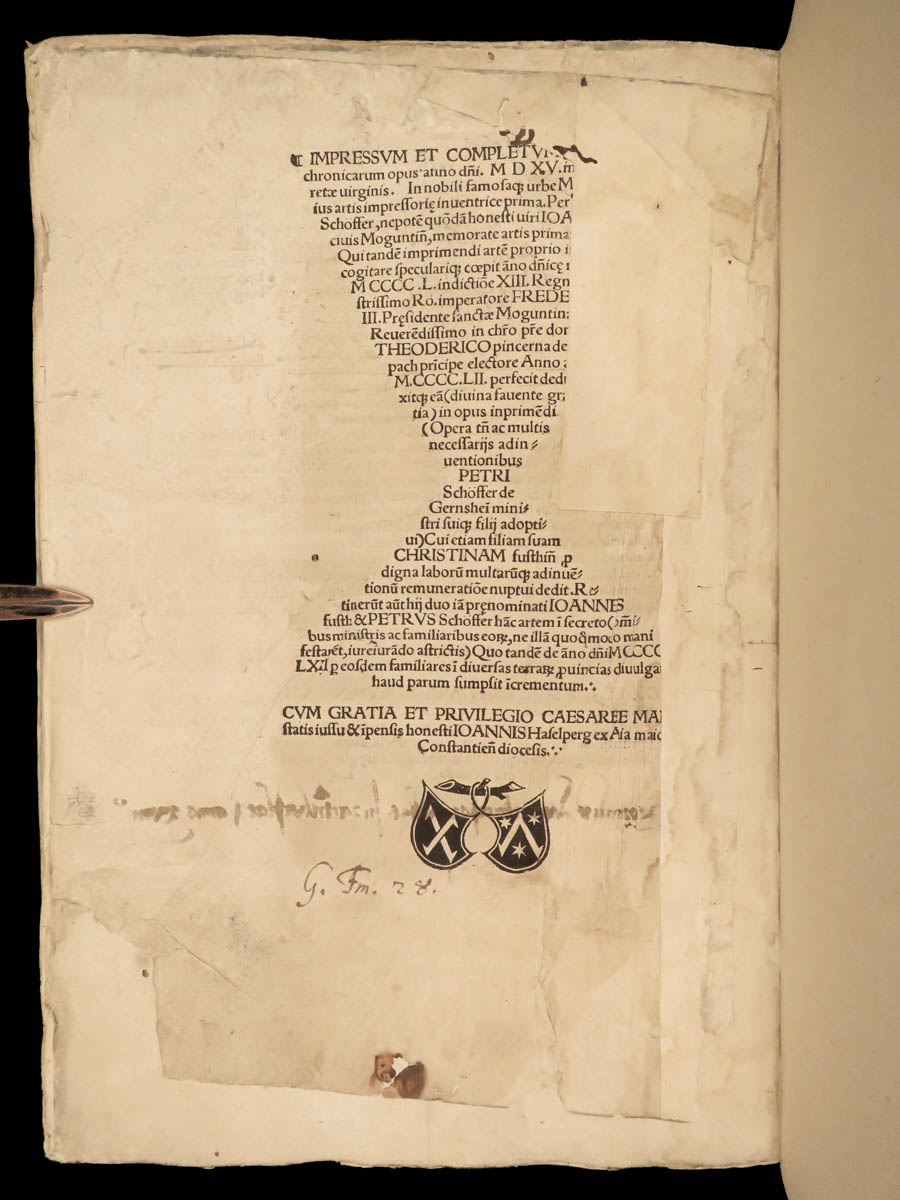 ¶ IMPRESSVM ET COMPLETVM
chronicarum opus anno dñi. M D XV. in
retæ uirginis. In nobili famosaq; urbe M
ius artis impressorię inuentrice prima. Per
Schöffer, nepotē quōdā honesti uiri IOA
ciuis Moguntiñ, memorate artis prima
Qui tandē imprimendi artē proprio i
cogitare speculariq; cœpit āno dñicę
M CCCC .L. indictiōe XIII. Regn
strissimo Ro. imperatore FREDE
III. Pręsidente sanctæ Moguntin
Reuerēdissimo in chr̄o pr̄e dor
THEODERICO pincerna de
pach prīcipe electore Anno
M.CCCC.LII. perfecit dedu
xitq; eā (diuina fauente gra
tia) in opus inprimēdi
(Opera tñ ac multis
necessarijs adin⸗
uentionibus
PETRI
Schöffer de
Gernsheī mini⸗
stri suiq; filij adopti⸗
ui) Cui etiam filiam suam
CHRISTINAM fusthiñ ꝓ
digna laborū multarūq; adinuē⸗
tionū remuneratiōe nuptui dedit. Re⸗
tinerūt aūt hij duo iā pręnominati IOANNES
fusth & PETRVS Schöffer hāc artem ī secreto (om̄i⸗
bus ministris ac familiaribus eorꝫ, ne illā quoq̄moco mani
festarēt, iureiurādo astrictis) Quo tandē de āno dñi M CCCC
LXII ꝑ eosdem familiares ī diuersas terrarꝫ ꝓuincias diuulga
haud parum sumpsit īcrementum.·.
CVM GRATIA ET PRIVILEGIO CAESAREE MAI
statis iussu & īpensis honesti IOANNIS Haselperg ex Aia maio
Constantieñ diocesis.·.·
G. Fm. 28.